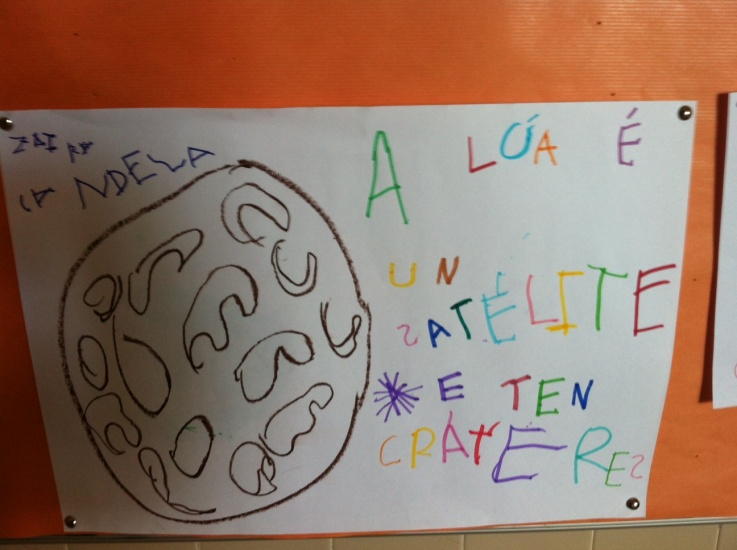 ZAIRA
CANDELA
A LÚA É
UN
SATÉLITE
E TEN
CRÁTERES